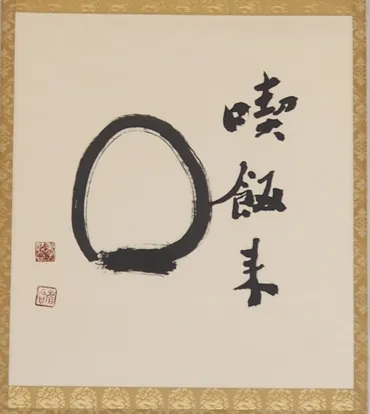 喫飯来